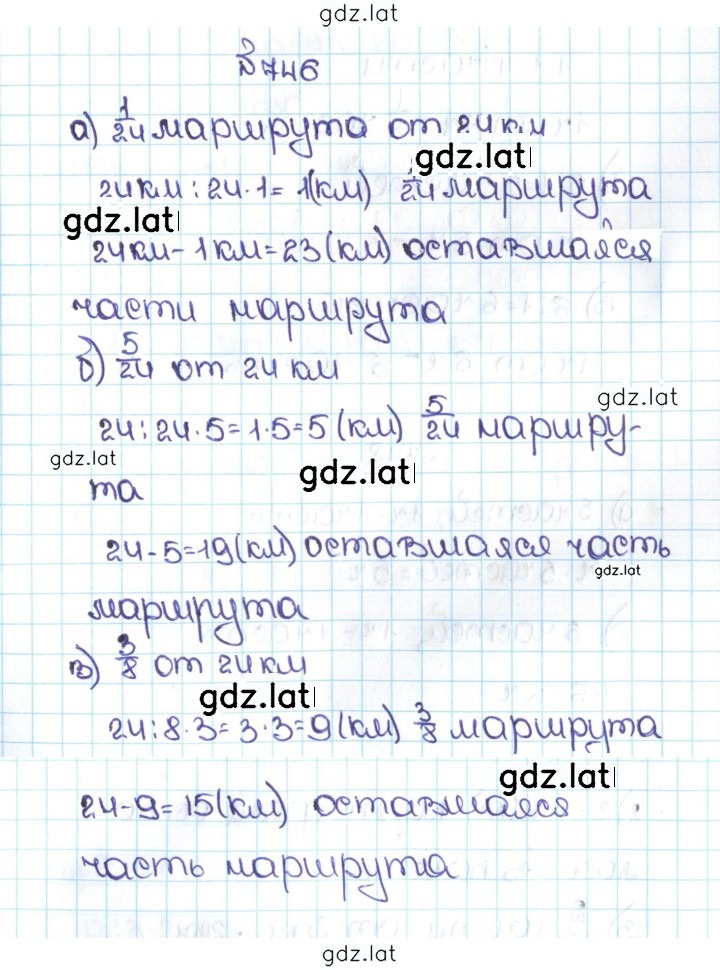 gdz.lat
№746
а) 1/24 маршрута от 24 км
gdz.lat
24 км : 24 · 1 = 1(км) 1/24 маршрута
gdz.lat
24 км - 1 км = 23 (км) оставшаяся
части маршрута
б) 5/24 от 24 км
gdz.lat
24 : 24 · 5 = 1 · 5 = 5 (км) 5/24 маршру-
gdz.lat
gdz.lat
та
24 - 5 = 19(км) оставшаяся часть
gdz.lat
маршрута
в) 3/8 от 24 км
gdz.lat
24 : 8 · 3 = 3 · 3 = 9 (км) 3/8 маршрута
gdz.lat
24 - 9 = 15(км) оставшаяся
часть маршрута
gdz.lat